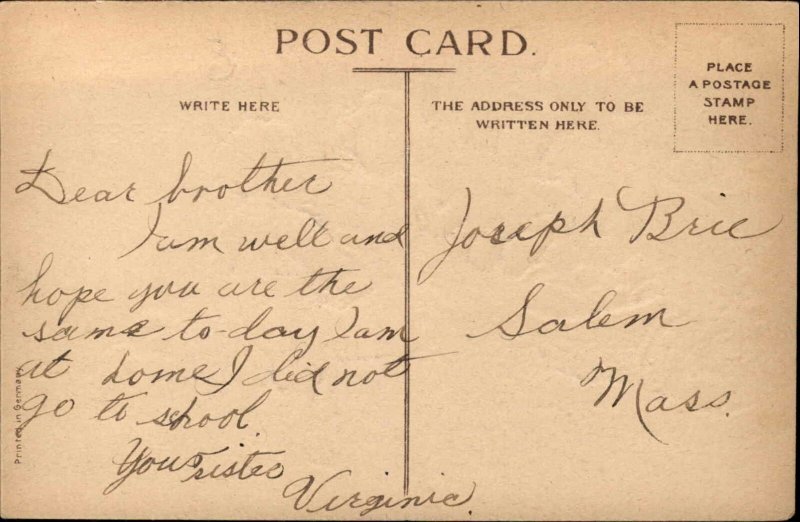 POST CARD.
PLACE
A POSTAGE
STAMP
HERE.
WRITE HERE
THE ADDRESS ONLY TO BE
WRITTEN HERE.
Dear brother
I am well and
hope you are the
same to-day I am
at home I did not
go to school
Your sister
Virginia
Joseph Brie
Salem
Mass.
Printed in Germany